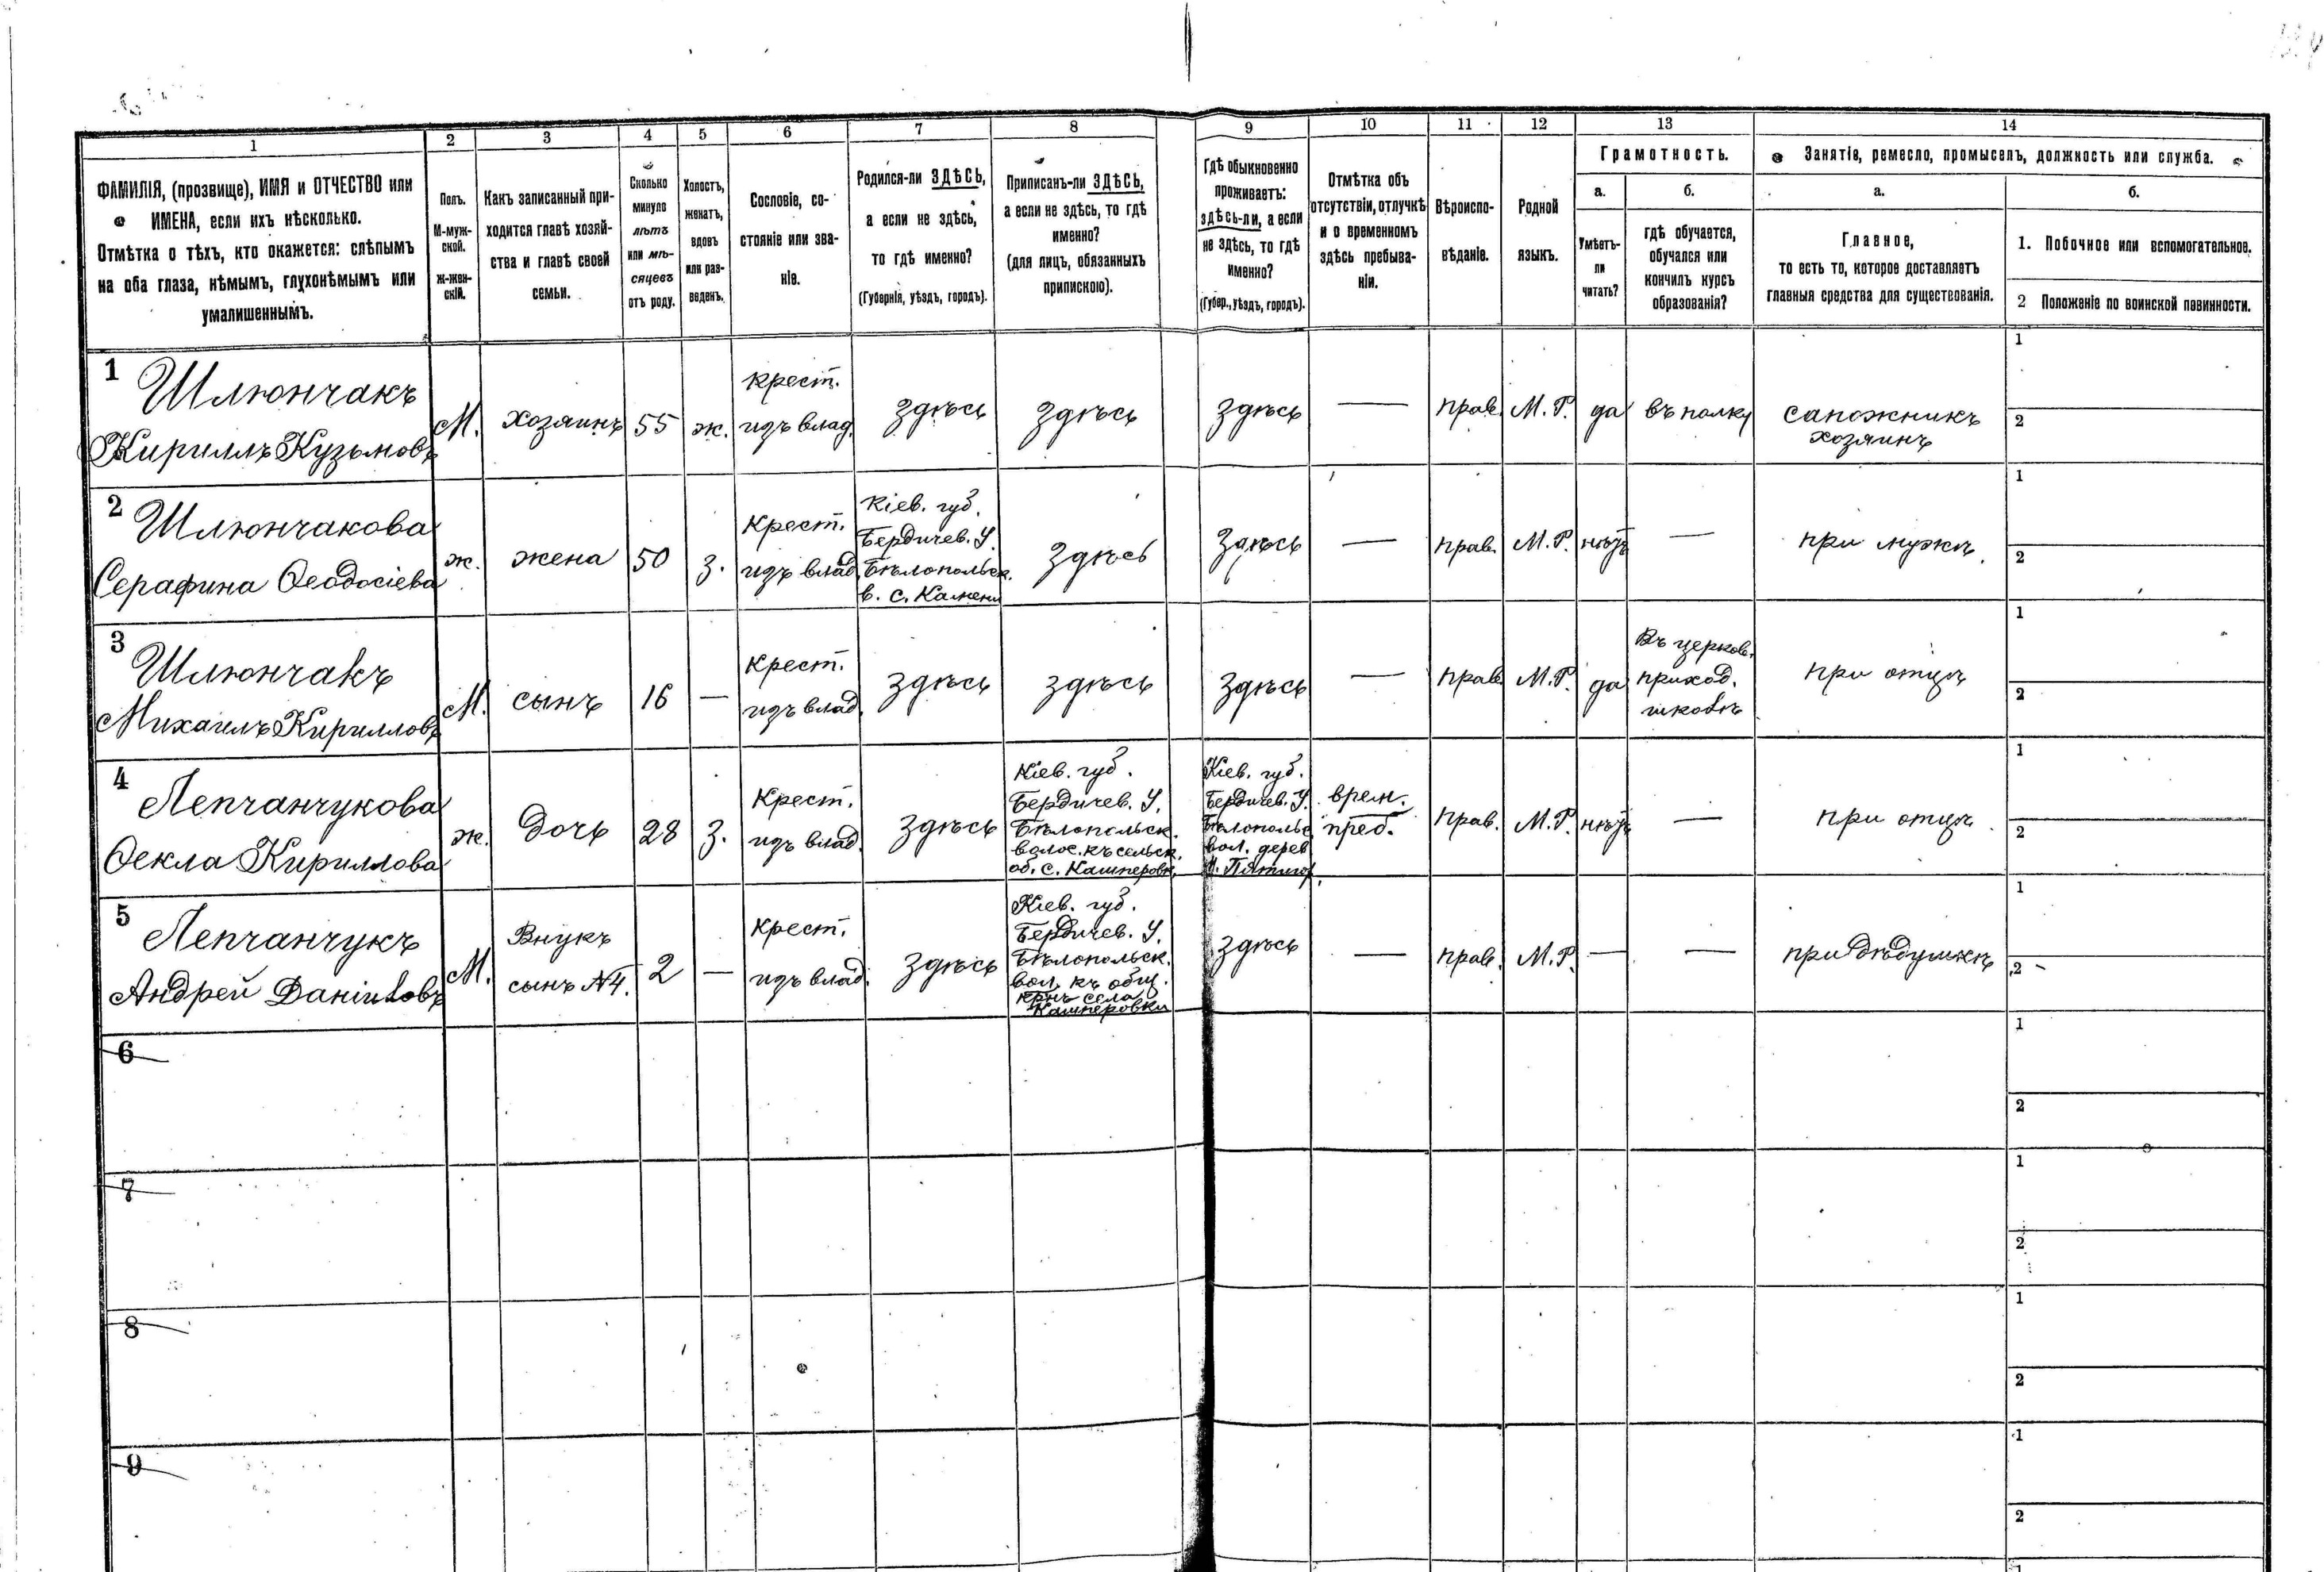 1
2
3
4
5
6
7
8
9
10
11
12
13
14
ФАМИЛІЯ, (прозвище), ИМЯ и ОТЧЕСТВО или
ИМЕНА, если ихъ нѣсколько.
Отмѣтка о тѣхъ, кто окажется: слѣпымъ
на оба глаза, нѣмымъ, глухонѣмымъ или
умалишеннымъ.
Полъ.
М-муж-
ской.
ж-жен-
скій.
Какъ записанный при-
ходится главѣ хозяй-
ства и главѣ своей
семьи.
Сколько
минуло
лѣтъ
или мѣ-
сяцевъ
отъ роду.
Холостъ,
женатъ,
вдовъ
или раз-
веденъ.
Сословіе, со-
стояніе или зва-
ніе.
Родился-ли ЗДѢСЬ,
а если не здѣсь,
то гдѣ именно?
(Губернія, уѣздъ, городъ).
Приписанъ-ли ЗДѢСЬ,
а если не здѣсь, то гдѣ
именно?
(для лицъ, обязанныхъ
припискою).
Гдѣ обыкновенно
проживаетъ:
здѣсь-ли, а если
не здѣсь, то гдѣ
именно?
(Губер., уѣздъ, городъ).
Отмѣтка объ
отсутствіи, отлучкѣ
и о временномъ
здѣсь пребыва-
ніи.
Вѣроиспо-
вѣданіе.
Родной
языкъ.
Грамотность.
а.
Умѣетъ-
ли
читать?
б.
гдѣ обучается,
обучался или
кончилъ курсъ
образованія?
Занятіе, ремесло, промыселъ, должность или служба.
а.
Главное,
то есть то, которое доставляетъ
главныя средства для существованія.
б.
1. Побочное или вспомогательное.
2 Положеніе по воинской повинности.
1
Шлюнчакъ
Кириллъ Кузьмовъ
М.
хозяинъ
55
ж.
крест.
изъ влад.
здѣсь
здѣсь
здѣсь
—
прав.
М. Р.
да
въ полку
сапожникъ
хозяинъ
1
2
2
Шлюнчакова
Серафина Ѳеодосіева
ж.
жена
50
з.
Крест.
изъ влад.
Кіев. губ.
Бердичев. У.
Бѣлопольск.
в. с. Камени
здѣсь
здѣсь
—
прав.
М. Р.
нѣтъ
—
при мужѣ
1
2
3
Шлюнчакъ
Михаилъ Кирилловъ
М.
сынъ
16
—
Крест.
изъ влад.
здѣсь
здѣсь
здѣсь
—
прав.
М. Р.
да
Въ церков.
приход.
школѣ
при отцѣ
1
2
4
Лепчанчукова
Ѳекла Кириллова
ж.
дочь
28
з.
Крест.
изъ влад.
здѣсь
Кіев. губ.
Бердичев. У.
Бѣлопольск.
волос. къ сельск.
об. с. Кашперовк.
Кіев. губ.
Бердичев. У.
Бѣлопольс
вол. дерев
М. Пятигор.
врем.
преб.
прав.
М. Р.
нѣтъ
—
при отцѣ
1
2
5
Лепчанчукъ
Андрей Даніиловъ
М.
Внукъ
сынъ №4.
2
—
Крест.
изъ влад.
здѣсь
Кіев. губ.
Бердичев. У.
Бѣлопольск.
вол. къ общ.
крнъ села
Кашперовки
здѣсь
—
прав.
М. Р.
—
—
при дѣдушкѣ
1
2
6
1
2
7
1
2
8
1
2
9
1
2